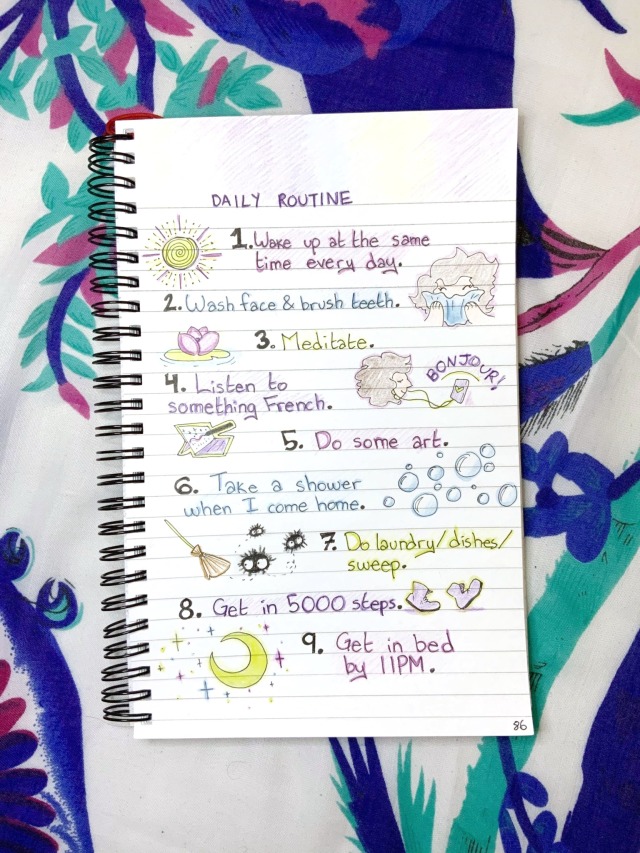 DAILY ROUTINE
1. Wake up at the same
time every day.
2. Wash face & brush teeth.
3. Meditate.
4. Listen to
something French.
BONJOUR!
5. Do some art.
6. Take a shower
when I come home.
7. Do laundry/dishes/
sweep.
8. Get in 5000 steps.
9. Get in bed
by 11PM.
86